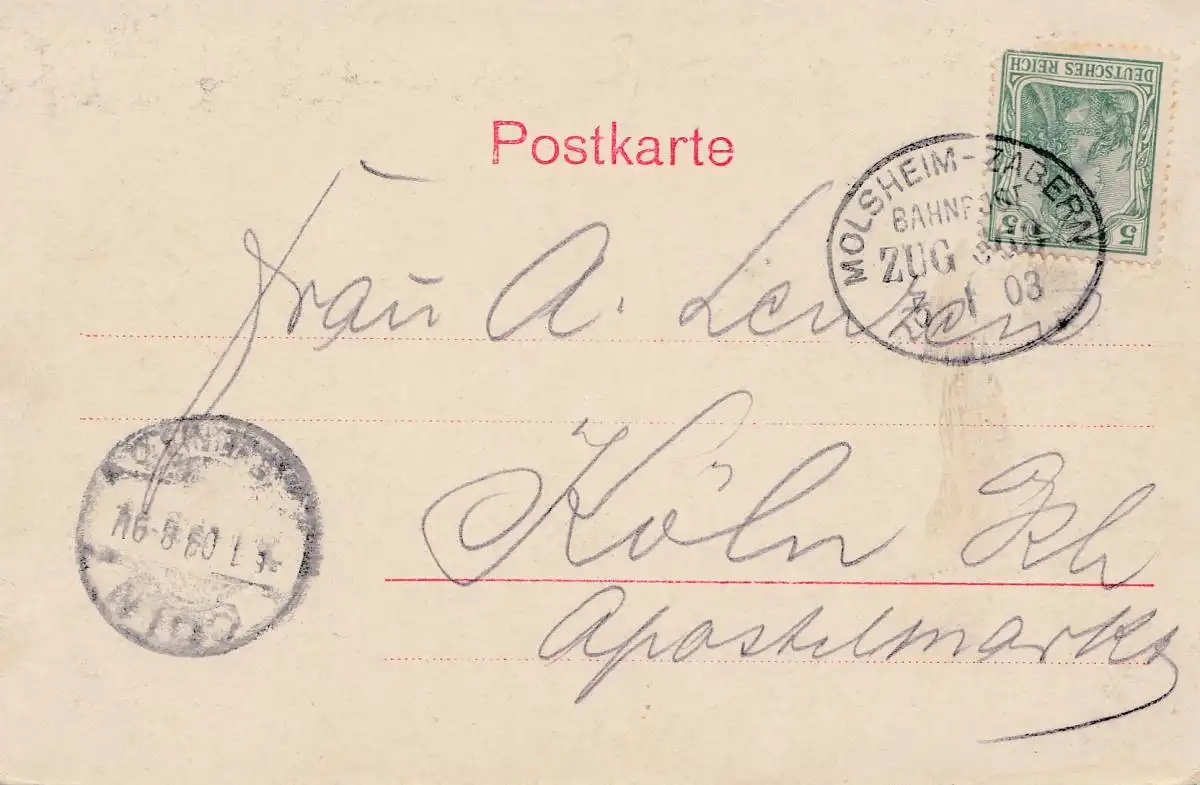 Postkarte
DEUTSCHES REICH
5 5
MOLSHEIM-ZABERN
BAHNPOST
ZUG
1 03
Frau A.
Köln Rh
Apostelmarkt
1 03 8-9V
CÖLN